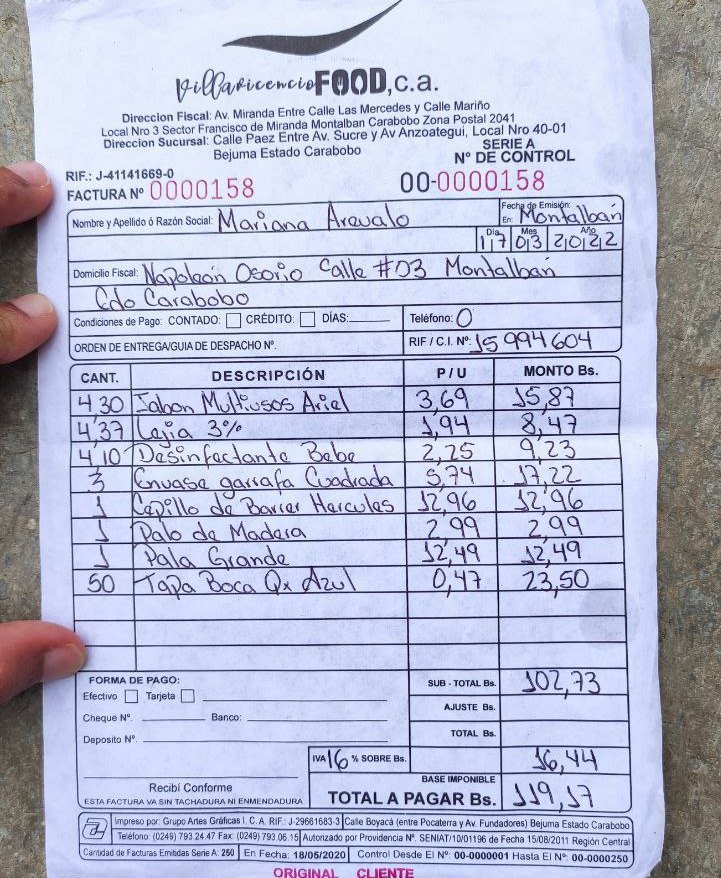 Villavicencio FOOD, c.a.
Direccion Fiscal: Av. Miranda Entre Calle Las Mercedes y Calle Mariño
Local Nro 3 Sector Francisco de Miranda Montalban Carabobo Zona Postal 2041
Direccion Sucursal: Calle Paez Entre Av. Sucre y Av Anzoategui, Local Nro 40-01
Bejuma Estado Carabobo
SERIE A
RIF.: J-41141669-0 N° DE CONTROL
FACTURA Nº 0000158 00-0000158
Nombre y Apellido ó Razón Social: Mariana Arevalo Fecha de Emisión: En: Montalbán
Dia Mes Año
17 03 2022
Domicilio Fiscal: Napoleón Osorio Calle #03 Montalban
Edo Carabobo
Condiciones de Pago: CONTADO: CRÉDITO: DÍAS: Teléfono: 0
ORDEN DE ENTREGA/GUIA DE DESPACHO Nº. RIF / C.I. Nº: 15994604
CANT. DESCRIPCIÓN P / U MONTO Bs.
4,30 Jabon Multiusos Ariel 3,69 15,87
4,37 Lejia 3% 1,94 8,47
4,10 Desinfectante Bebe 2,25 9,23
3 Envase garrafa Cuadrada 5,74 17,22
1 Cepillo de Barrer Hercules 12,96 12,96
1 Palo de Madera 2,99 2,99
1 Pala Grande 12,49 12,49
50 Tapa Boca Qx Azul 0,47 23,50
FORMA DE PAGO: SUB - TOTAL Bs. 102,73
Efectivo Tarjeta AJUSTE Bs.
Cheque Nº. Banco:
Deposito Nº. TOTAL Bs.
IVA 16 % SOBRE Bs. 16,44
BASE IMPONIBLE
Recibí Conforme
ESTA FACTURA VA SIN TACHADURA NI ENMENDADURA TOTAL A PAGAR Bs. 119,17
Impreso por: Grupo Artes Gráficas I. C. A. RIF.: J-29661683-3 Calle Boyacá (entre Pocaterra y Av. Fundadores) Bejuma Estado Carabobo
Teléfono: (0249) 793.24.47 Fax: (0249) 793.06.15 Autorizado por Providencia Nº. SENIAT/10/01196 de Fecha 15/08/2011 Región Central
Cantidad de Facturas Emitidas Serie A: 250 En Fecha: 18/05/2020 Control Desde El Nº: 00-0000001 Hasta El Nº: 00-0000250
ORIGINAL CLIENTE